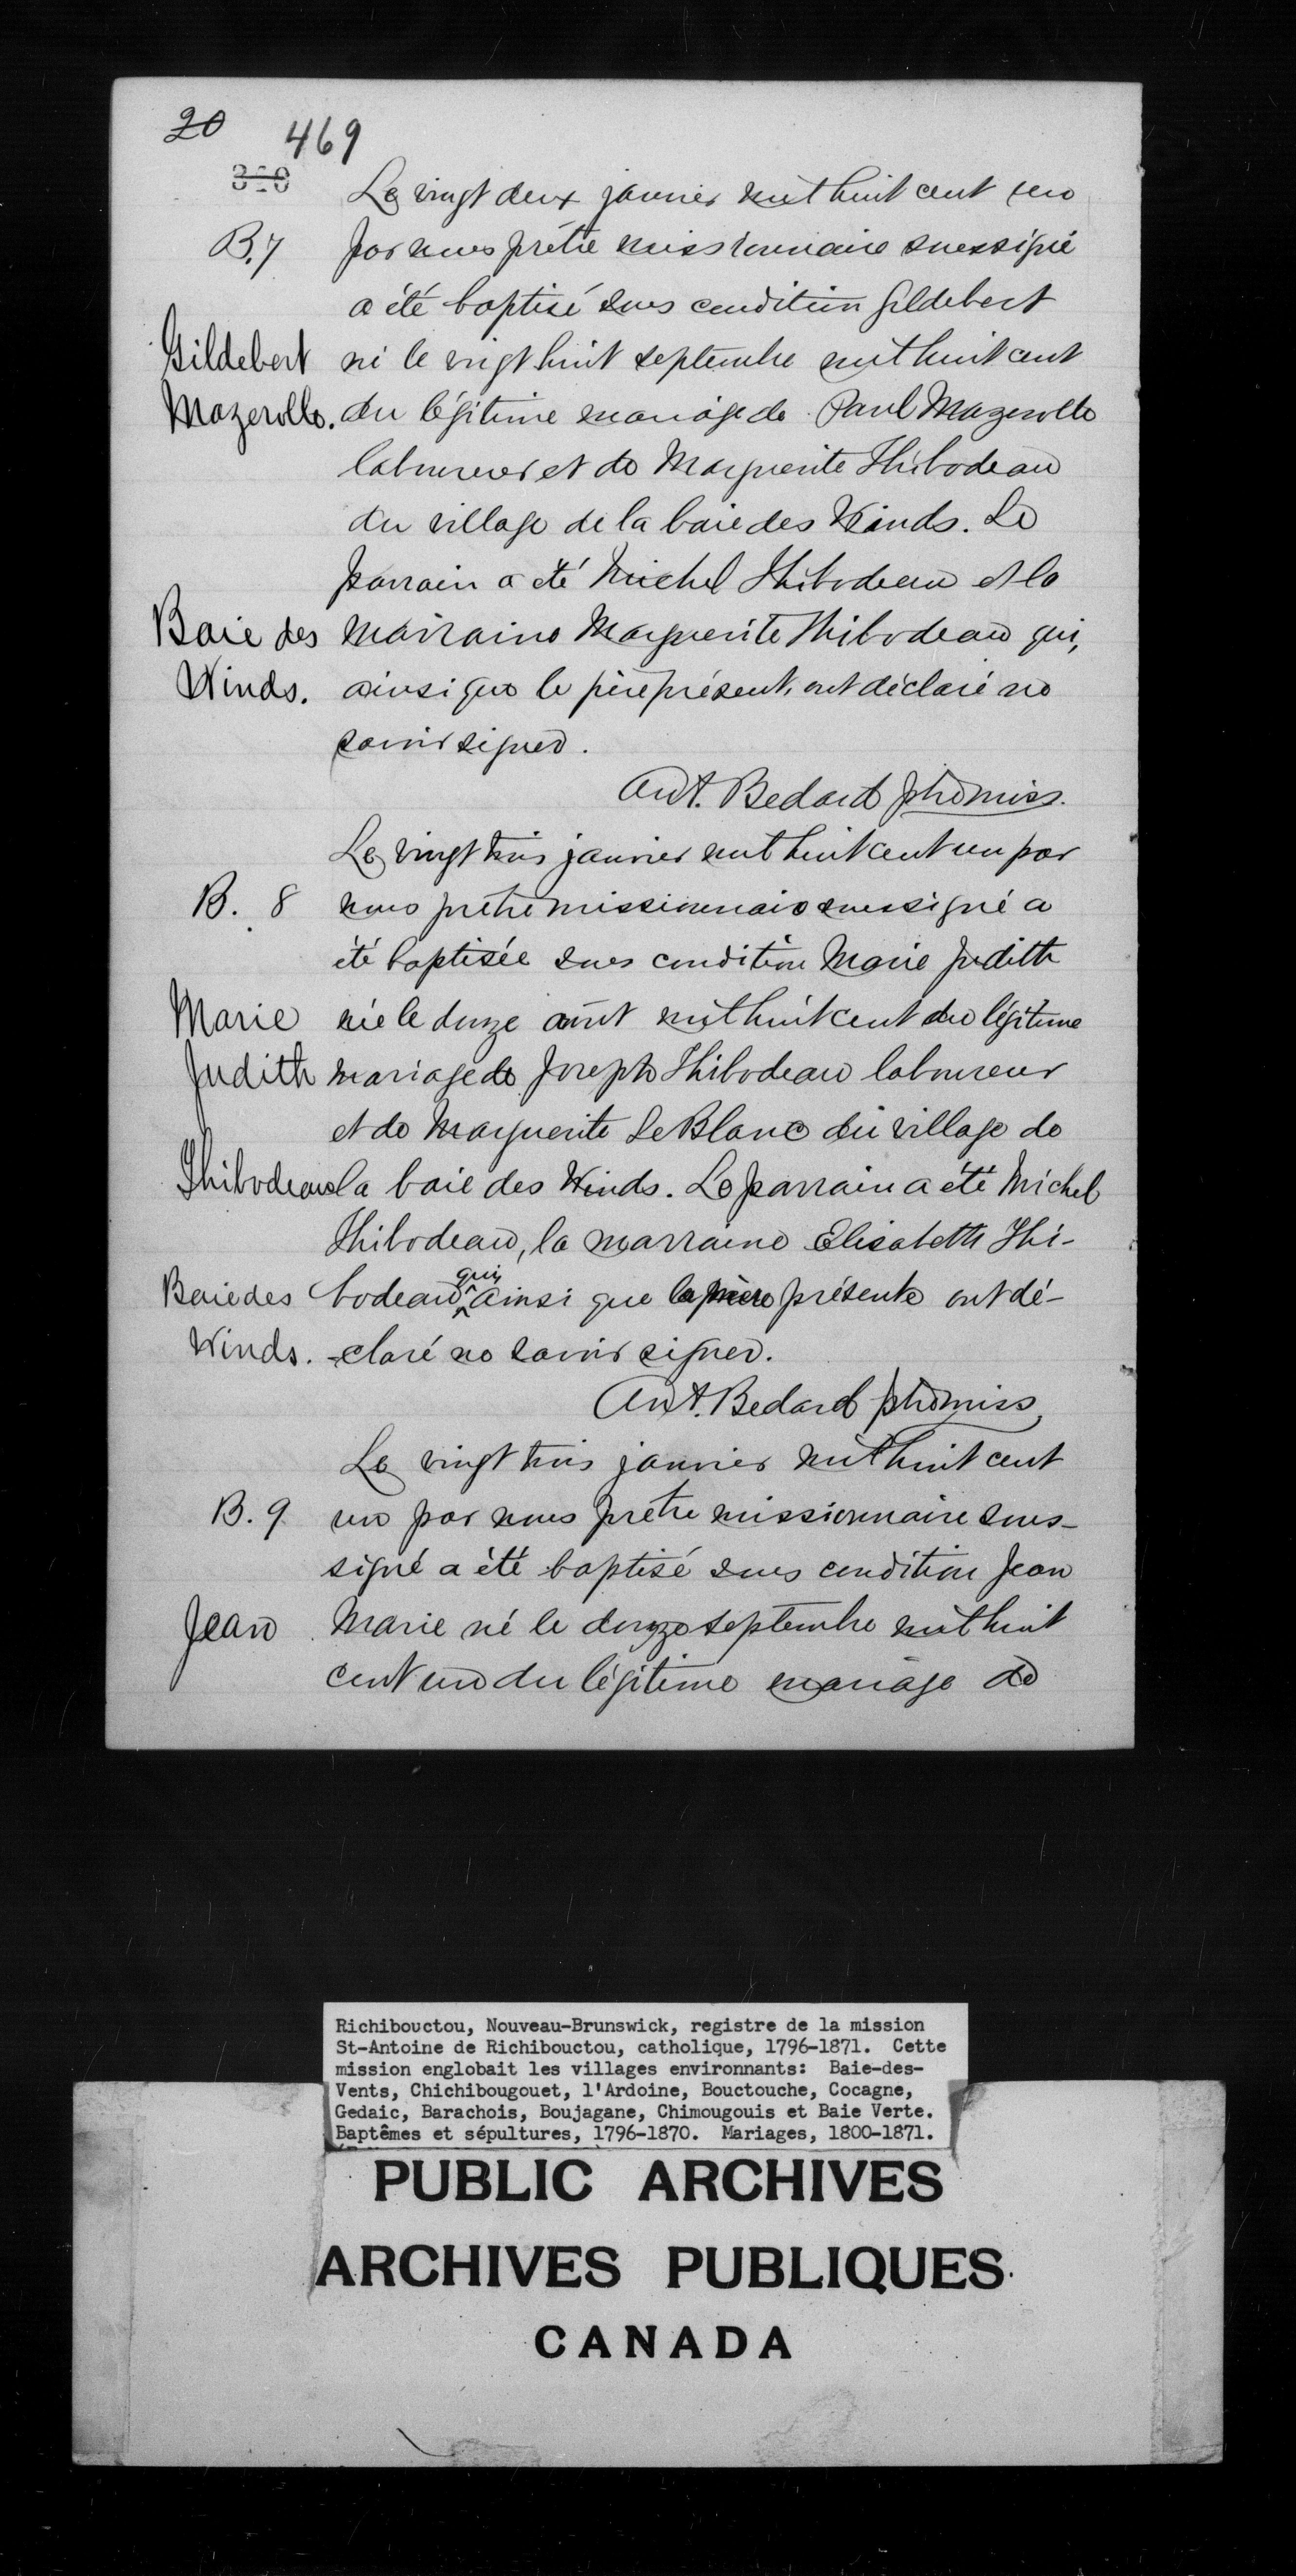 20
469
320
Le vingt deux janvier mil huit cent un
B. 7
par nous prêtre missionnaire soussigné
a été baptisé sous condition Gildebert
Gildebert
né le vingt huit septembre mil huit cent
Mazerolle.
du légitime mariage de Paul Mazerolle
laboureur et de Marguerite Thibodeau
du village de la baie des Winds. Le
parrain a été Michel Thibodeau et la
Baie des
marraine Marguerite Thibodeau qui,
Winds.
ainsi que le père présent, ont déclaré ne
savoir signer.
Ant. Bedard ptre miss.
Le vingt trois janvier mil huit cent un par
B. 8
nous prêtre missionnaire soussigné a
été baptisée sous condition Marie Judith
Marie
née le douze août mil huit cent du légitime
Judith
mariage de Joseph Thibodeau laboureur
et de Marguerite LeBlanc du village de
Thibodeau
la baie des Winds. Le parrain a été Michel
Thibodeau, la marraine Elisabeth Thi-
Baie des
bodeau qui ainsi que la mère présente ont dé-
Winds.
-claré ne savoir signer.
Ant. Bedard ptre miss,
Le vingt trois janvier mil huit cent
B. 9
un par nous prêtre missionnaire sous-
signé a été baptisé sous condition Jean
Jean
Marie né le douze septembre mil huit
cent un du légitime mariage de
Richibouctou, Nouveau-Brunswick, registre de la mission
St-Antoine de Richibouctou, catholique, 1796-1871. Cette
mission englobait les villages environnants: Baie-des-
Vents, Chichibougouet, l'Ardoine, Bouctouche, Cocagne,
Gedaic, Barachois, Boujagane, Chimougouis et Baie Verte.
Baptêmes et sépultures, 1796-1870. Mariages, 1800-1871.
PUBLIC ARCHIVES
ARCHIVES PUBLIQUES
CANADA